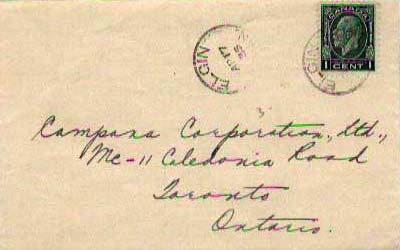 ELGIN
AP 17
35
ELGIN
CANADA
1 CENT 1
Campana Corporation, Ltd.,
Mc-11 Caledonia Road
Toronto
Ontario.